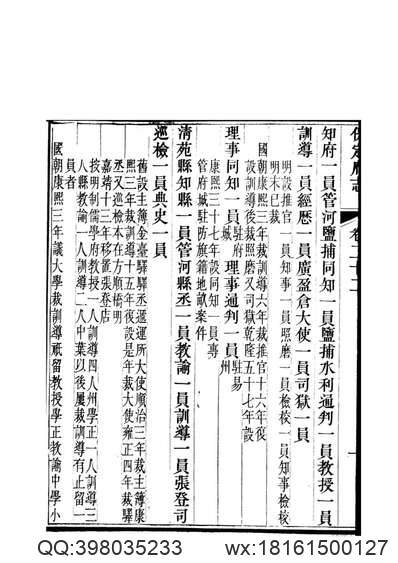 保定府志 卷二十二
知府一員管河鹽捕同知一員鹽捕水利通判一員教授一員
訓導一員經歷一員廣盈倉大使一員司獄一員
明設推官一員知事一員照磨一員檢校一員知事檢校
明末已裁
國朝康熙三年裁訓導六年裁推官十六年復
設訓導後裁照磨又司獄乾隆五十七年設
理事同知一員駐府城 理事通判一員駐易州
康熙三十七年設同知一員專
管府城駐防旗籍地畝案件
清苑縣知縣一員管河縣丞一員教諭一員訓導一員張登司
巡檢一員典史一員
舊設主簿金臺驛驛丞遞運所大使順治三年裁主簿康
熙三年裁訓導十五年復設是年裁大使雍正四年裁驛
丞又巡檢本在方順橋明
嘉靖十三年移置張登店
按明制儒學府教授一人訓導四人州學正一人訓導三
人縣教諭一人訓導二人中葉以後屢裁訓導有止留一
員者
國朝康熙三年議大學裁訓導祇留教授學正教諭中學小
QQ:398035233 wx:18161500127